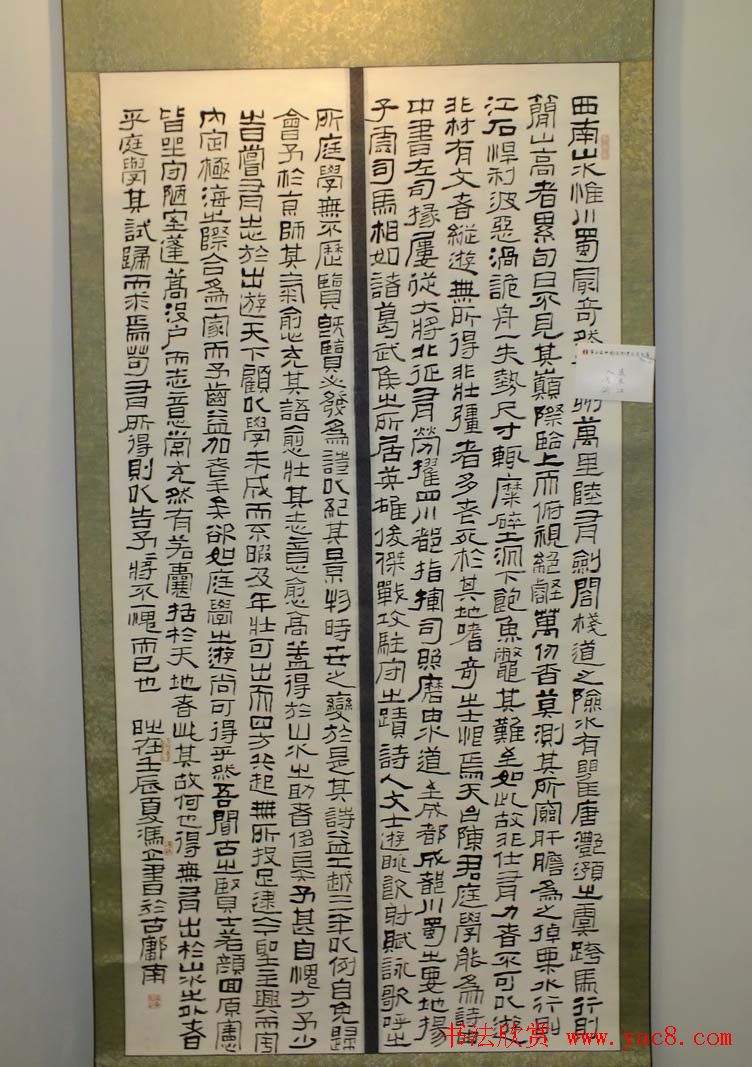 西南山水惟川蜀最奇然州萬里陸有劍閣棧道之險水有瞿唐灩澦之虞跨馬行則
簡山高者累旬日不見其巔際臨上而俯視絕壑萬仞杳莫測其所窮肝膽為之掉栗水行則
江石悍利波惡渦詭舟一失勢尺寸輒糜碎土沉下飽魚鱉其難至如此故非仕有力者不可以遊
非材有文者縱遊無所得非壯彊者多老死於其地嗜奇之士恨焉天台陳君庭學能為詩由
中書左司掾屢從大將北征有勞擢四川都指揮司照磨由水道至成都成都川蜀之要地揚
子雲司馬相如諸葛武侯之所居英雄俊傑戰攻駐守之蹟詩人文士遊眺飲射賦詠歌呼之
所庭學無不歷覽既覽必發為詩以紀其景物時世之變於是其詩益工越三年以例自免歸
會予於京師其氣愈充其語愈壯其志意愈高蓋得於山水之助者侈矣予甚自愧方予少
時嘗有志於出遊天下顧以學未成而不暇及年壯可出而四方兵起無所投足逮今聖主興而宇
內定極海之際合為一家而予齒益加耄矣欲如庭學之遊尚可得乎然吾聞古之賢士若顏回原憲
皆坐守陋室蓬蒿沒戶而志意常充然有若囊括於天地者此其故何也得無有出於山水之外者
乎庭學其試歸而求焉苟有所得則以告予予將不一愧而已也 時在壬辰夏馮書於古鄜南
书法欣赏 www.yac8.com